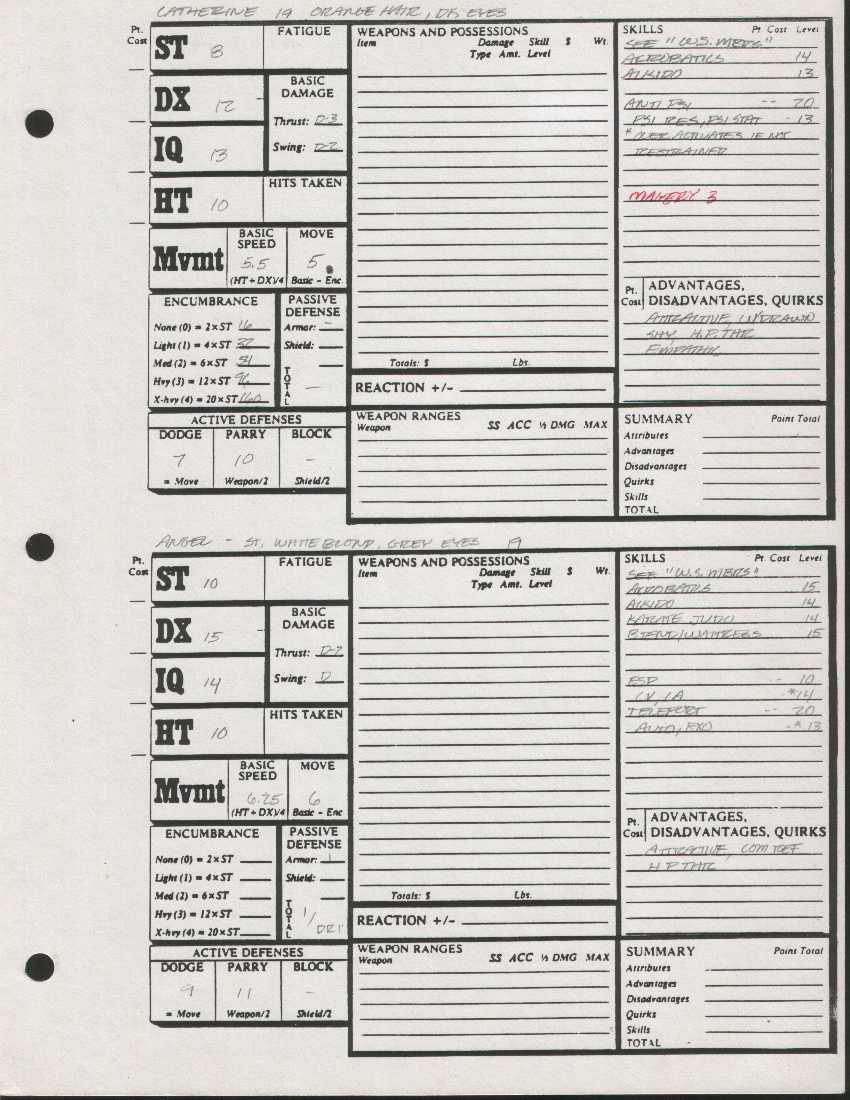 CATHERINE 19 ORANGE HAIR, DK EYES
Pt. Cost
ST 8
FATIGUE
DX 12
BASIC DAMAGE
Thrust: D-3
Swing: D-2
IQ 13
HT 10
HITS TAKEN
Mvmt
BASIC SPEED 5.5
(HT + DX)/4
MOVE 5
Basic – Enc.
ENCUMBRANCE
None (0) = 2 x ST 16
Light (1) = 4 x ST 32
Med (2) = 6 x ST
Hvy (3) = 12 x ST 96
X-hvy (4) = 20 x ST 160
PASSIVE DEFENSE
Armor: –
Shield:
TOTAL –
ACTIVE DEFENSES
DODGE PARRY BLOCK
7 10 –
= Move Weapon/2 Shield/2
WEAPONS AND POSSESSIONS
Item Damage Skill $ Wt.
Type Amt. Level
Totals: $ Lbs.
REACTION +/-
WEAPON RANGES
Weapon SS ACC ½ DMG MAX
SKILLS Pt Cost Level
SEE "W.S. MBRS."
ACROBATICS 14
AIKIDO 13
ANTI PSI -- 20
PSI RES, PSI STAT - 13
* OVER ACTIVATES IF NOT
RESTRAINED
MAHERY 3
Pt. Cost ADVANTAGES,
DISADVANTAGES, QUIRKS
ATTRACTIVE, W/DRAWN
SHY, H.P. THR
EMPATHIC
SUMMARY Point Total
Attributes
Advantages
Disadvantages
Quirks
Skills
TOTAL
ANGEL – ST. WHITE BLOND, GREY EYES 19
Pt. Cost
ST 10
FATIGUE
DX 15
BASIC DAMAGE
Thrust: D-2
Swing: D
IQ 14
HT 10
HITS TAKEN
Mvmt
BASIC SPEED 6.25
(HT + DX)/4
MOVE 6
Basic – Enc
ENCUMBRANCE
None (0) = 2 x ST
Light (1) = 4 x ST
Med (2) = 6 x ST
Hvy (3) = 12 x ST
X-hvy (4) = 20 x ST
PASSIVE DEFENSE
Armor: 1
Shield:
TOTAL 1/DR1
ACTIVE DEFENSES
DODGE PARRY BLOCK
9 11 –
= Move Weapon/2 Shield/2
WEAPONS AND POSSESSIONS
Item Damage Skill $ Wt.
Type Amt. Level
Totals: $ Lbs.
REACTION +/-
WEAPON RANGES
Weapon SS ACC ½ DMG MAX
SKILLS Pt Cost Level
SEE "W.S. MBRS"
ACROBATICS 15
AIKIDO 14
KARATE JUDO 14
15
ESP -- 10
-*14
TELEPORT -- 20
AUTO, EXO -* 13
Pt. Cost ADVANTAGES,
DISADVANTAGES, QUIRKS
ATTRACTIVE, COM REF
H P THR
SUMMARY Point Total
Attributes
Advantages
Disadvantages
Quirks
Skills
TOTAL